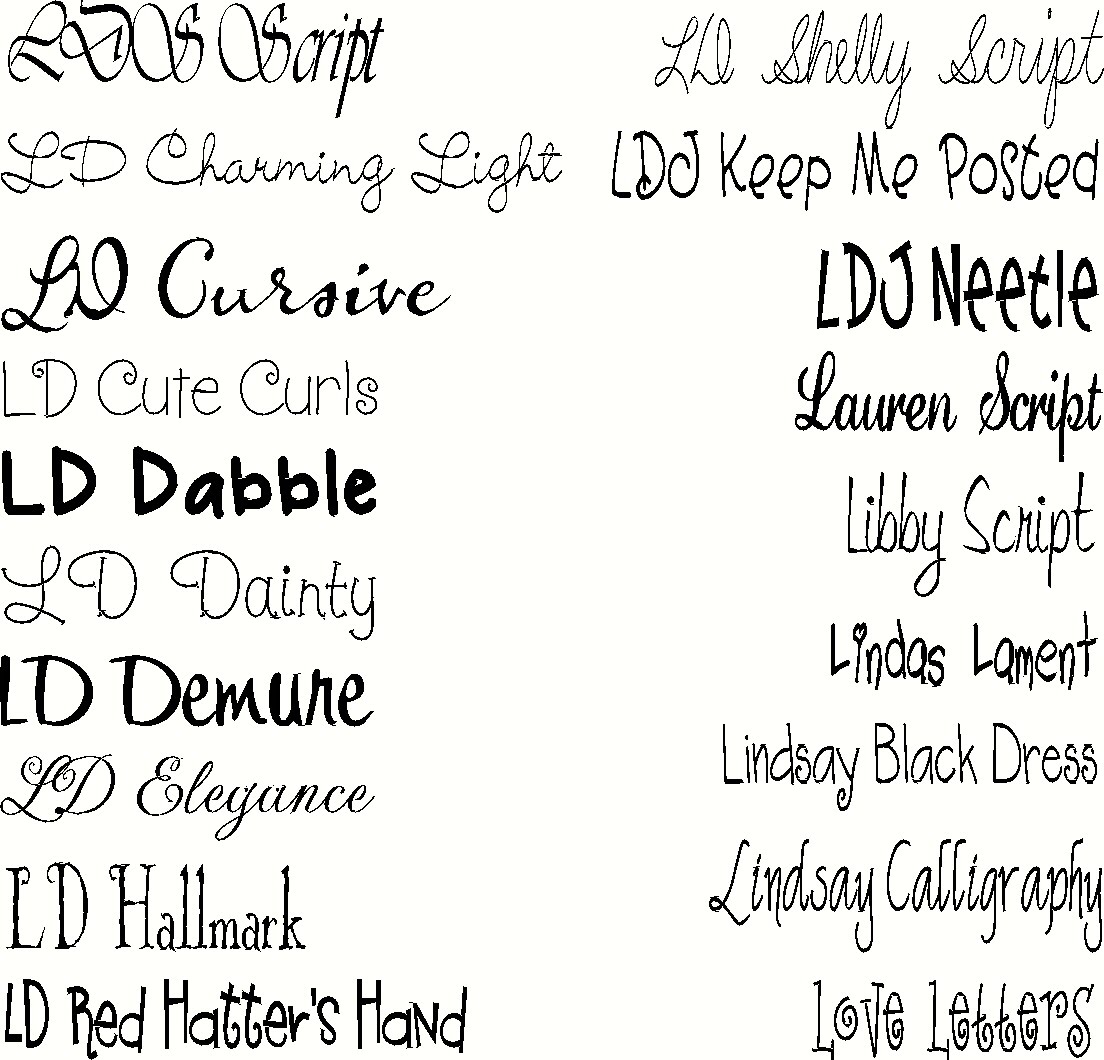 LDS Script
LD Charming Light
LD Cursive
LD Cute Curls
LD Dabble
LD Dainty
LD Demure
LD Elegance
LD Hallmark
LD Red Hatter's Hand
LD Shelly Script
LDJ Keep Me Posted
LDJ Neetle
Lauren Script
Libby Script
Lindas Lament
Lindsay Black Dress
Lindsay Calligraphy
Love Letters